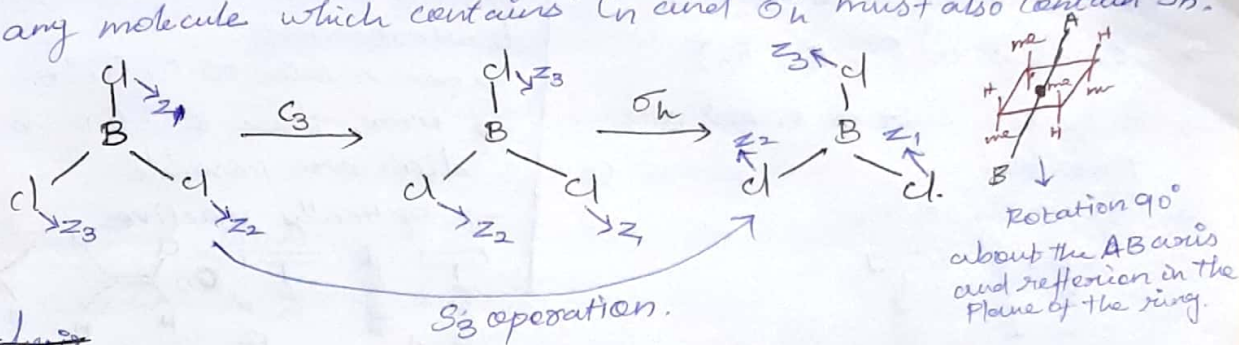 any molecule which contains Cn and σh must also contain Sn.
Cl Z1
B
Cl Z3
Cl Z2
C3
Cl Z3
B
Cl Z2
Cl Z1
σh
Z3 Cl
B
Z2 Cl
Z1 Cl.
S3 operation.
A
me H
H me me
me H
B
Rotation 90°
about the AB axis
and reffexion in the
Plane of the ring.